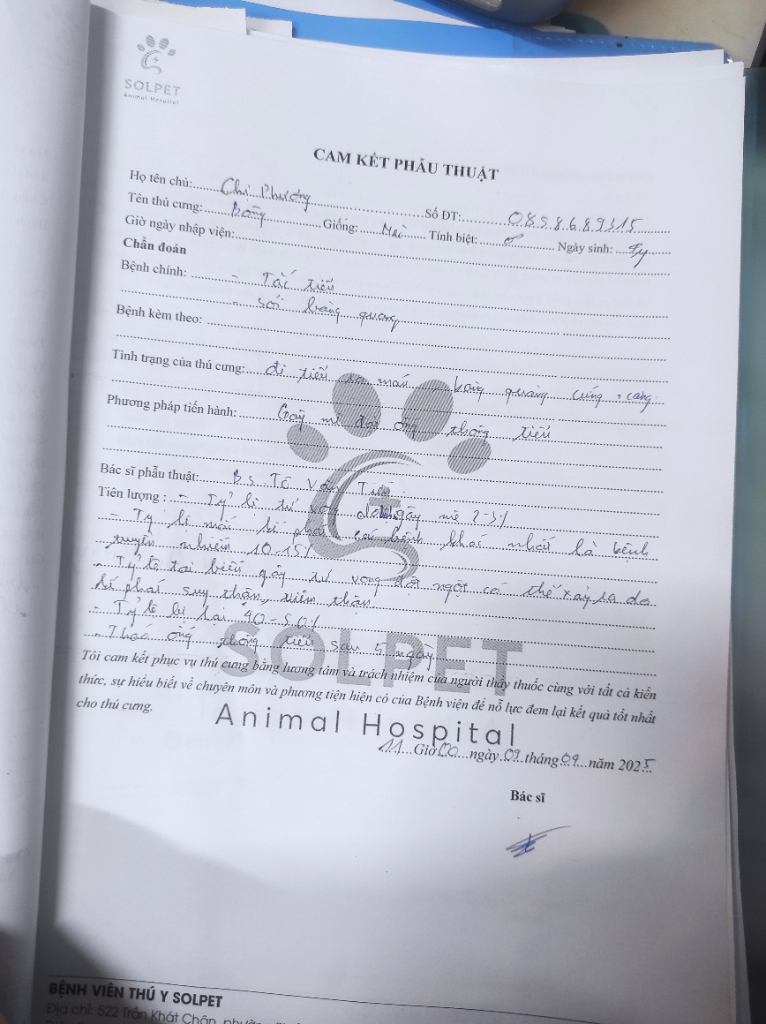 SOLPET
Animal Hospital
CAM KẾT PHẪU THUẬT
Họ tên chủ: Chị Phương Số ĐT: 0858689315
Tên thú cưng: Bông Giống: Mèo Tính biệt: ♂ Ngày sinh: 5y
Giờ ngày nhập viện:
Chẩn đoán
Bệnh chính: - Tắc tiểu
- sỏi bàng quang
Bệnh kèm theo:
Tình trạng của thú cưng: đi tiểu ra máu, bàng quang cứng, căng
Phương pháp tiến hành: Gây mê đặt ống thông tiểu
Bác sĩ phẫu thuật: Bs. Tô Văn
Tiên lượng: - Tỷ lệ tử vong do gây mê 2-3%
- Tỷ lệ mèo bị phải các bệnh khác nhất là bệnh
truyền nhiễm 10-15%
- Tỷ lệ tai biến gây tử vong đột ngột có thể xảy ra do
bị phải suy thận, viêm thận
- Tỷ lệ bị lại 40-50%
- Tháo ống thông tiểu sau 5 ngày
SOLPET
Tôi cam kết phục vụ thú cưng bằng lương tâm và trách nhiệm của người thầy thuốc cùng với tất cả kiến
thức, sự hiểu biết về chuyên môn và phương tiện hiện có của Bệnh viện để nỗ lực đem lại kết quả tốt nhất
cho thú cưng.
Animal Hospital
11 Giờ 00 ngày 09 tháng 09 năm 2025
Bác sĩ
BỆNH VIỆN THÚ Y SOLPET
Địa chỉ: 522 Trần Khát Chân,